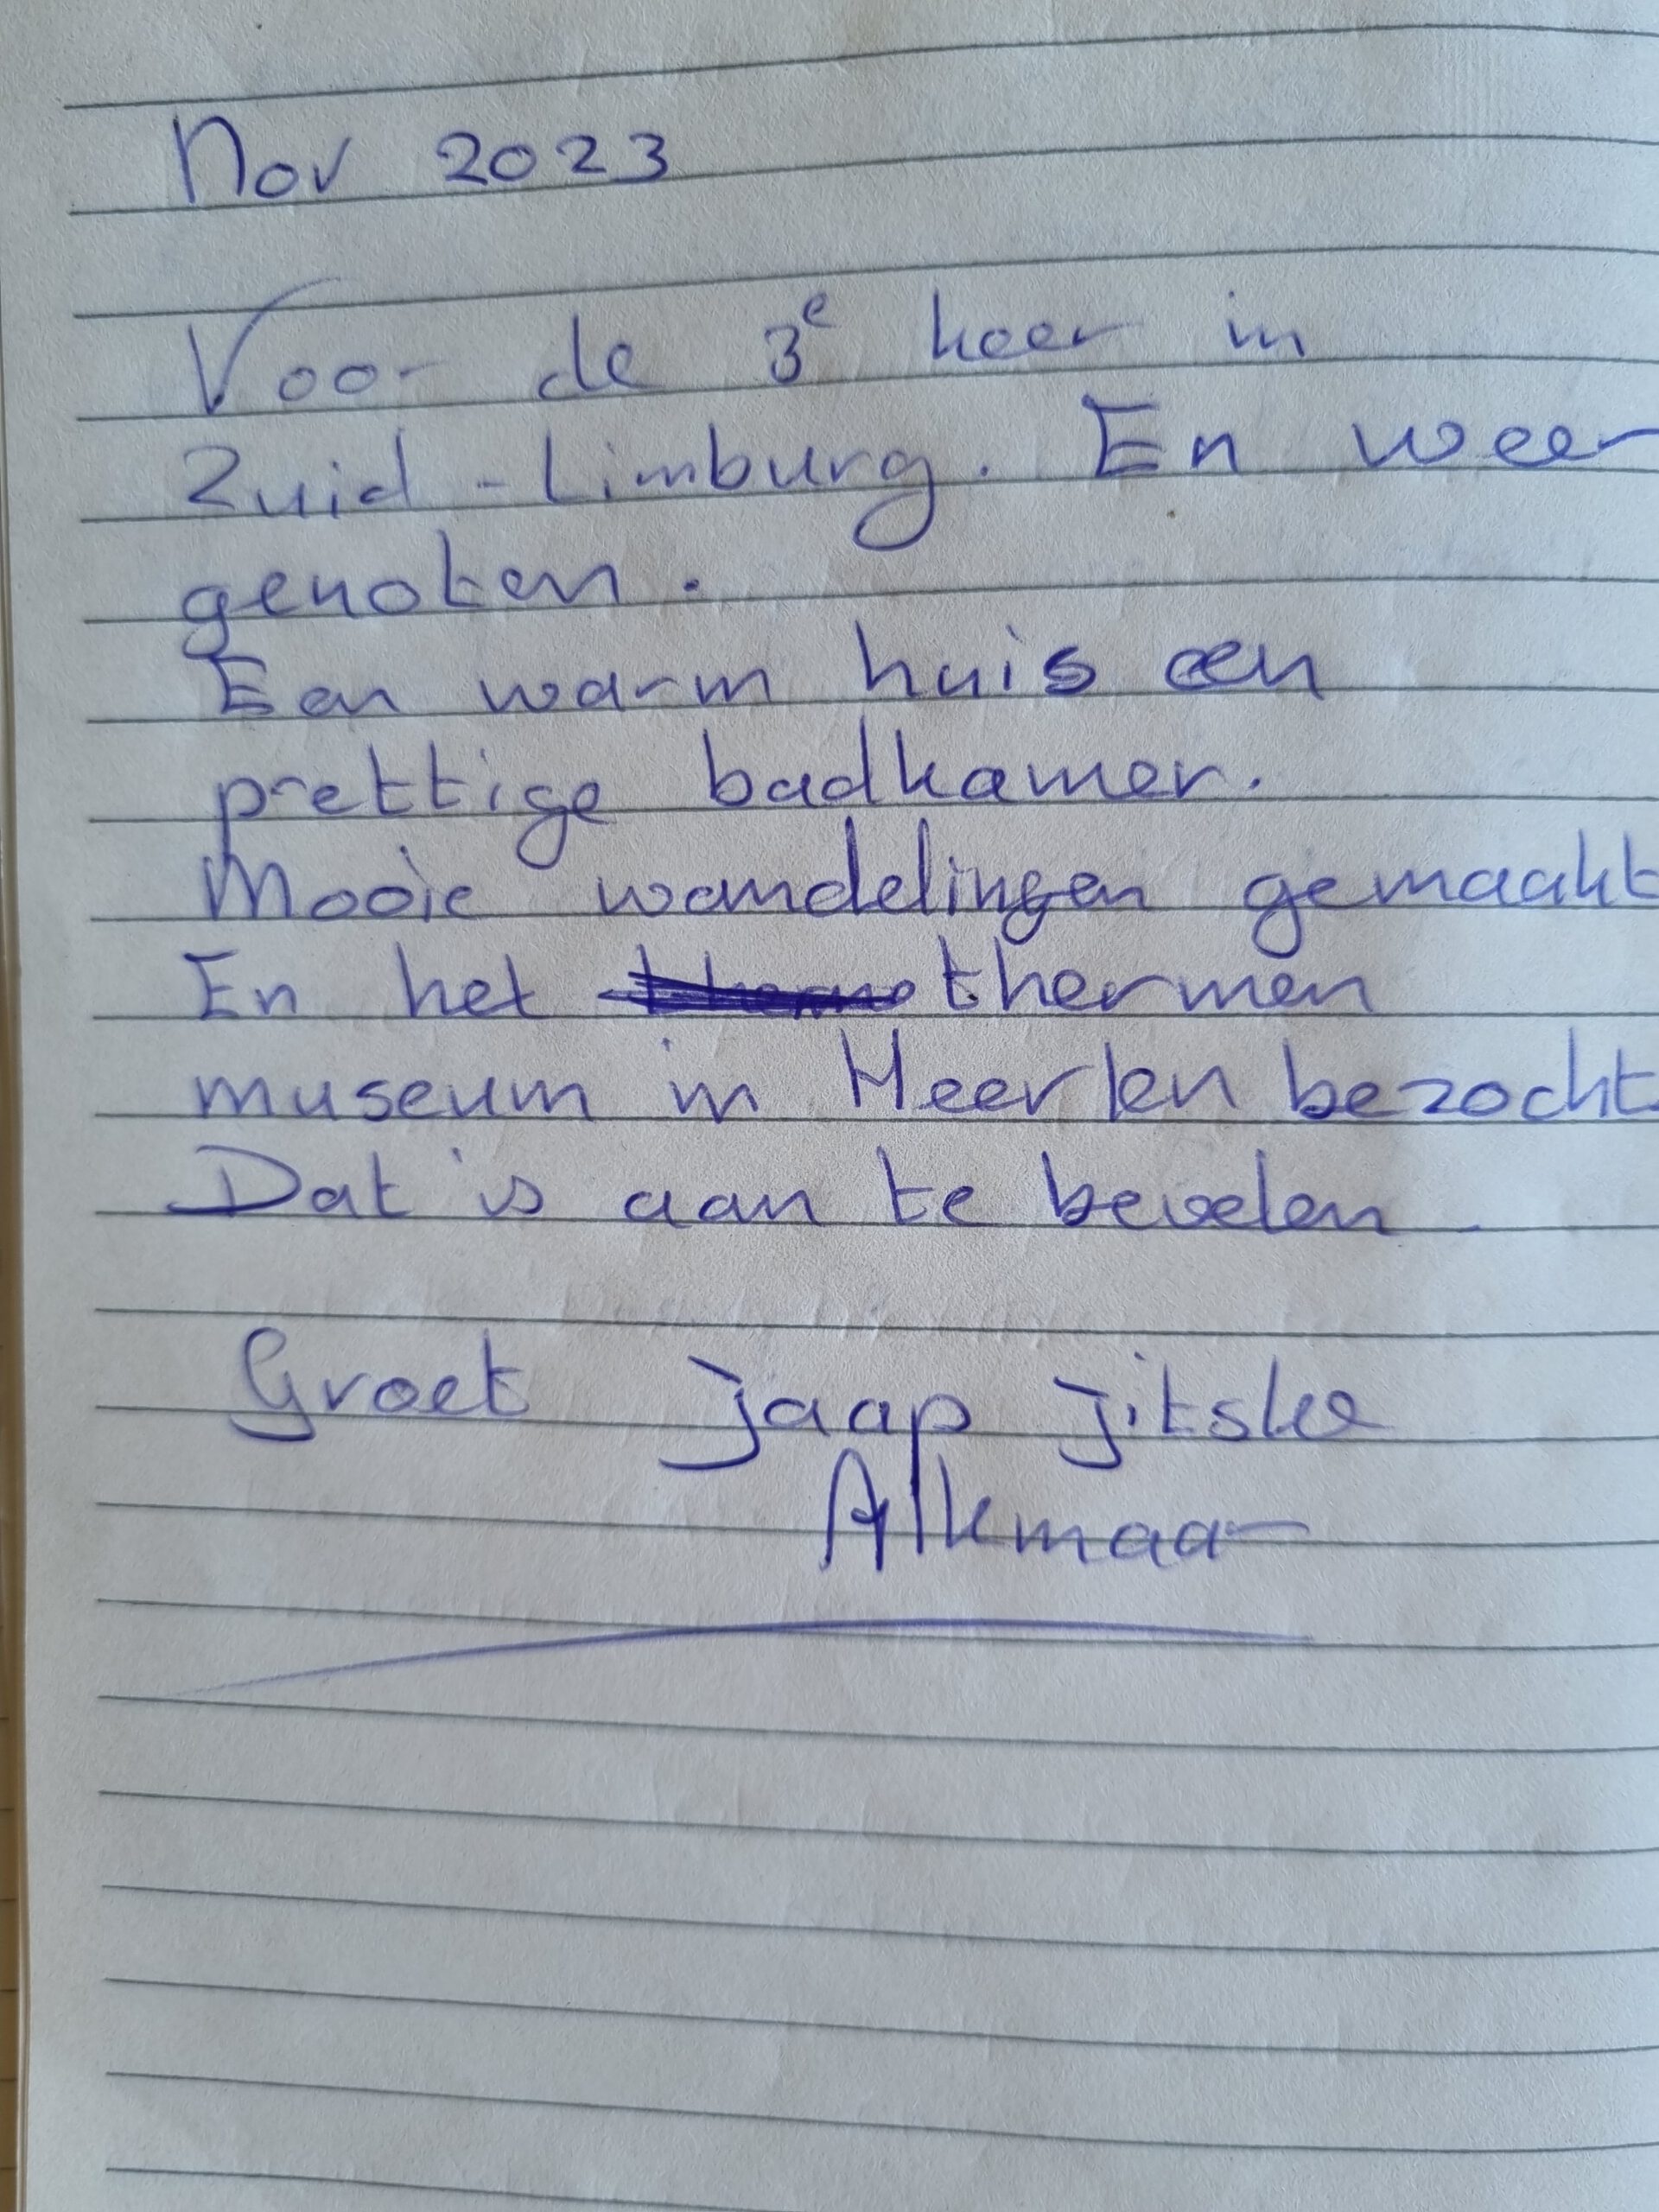 Nov 2023
Voor de 3e keer in
Zuid-Limburg. En weer
genoten.
Een warm huis een
prettige badkamer.
Mooie wandelingen gemaakt
En het thermen
museum in Heerlen bezocht
Dat is aan te bevelen
Groet Jaap Jitske
Alkmaar